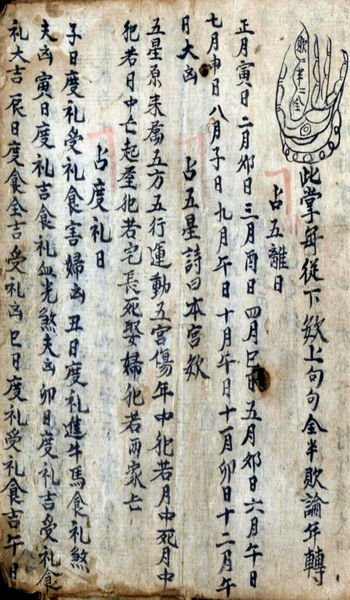 歟半二全
此掌每從下歟上句句全半敗論年轉
占五離日
正月寅日二月卯日三月酉日四月巳日五月卯日六月午日
七月申日八月子日九月午日十月午日十一月卯日十二月午
日大凶
占五星詩曰本宮歟
五星原来属五方五行運動五宮傷年中犯若月中死月中
犯若日中亡起屋犯若宅長死娶婦犯若兩家亡
占度礼日
子日度礼受礼食害婦凶丑日度礼進牛馬食礼煞
夫凶寅日度礼吉食礼血光煞夫凶卯日度礼吉受礼食
礼大吉辰日度食全吉受礼凶巳日度礼受礼食吉午日